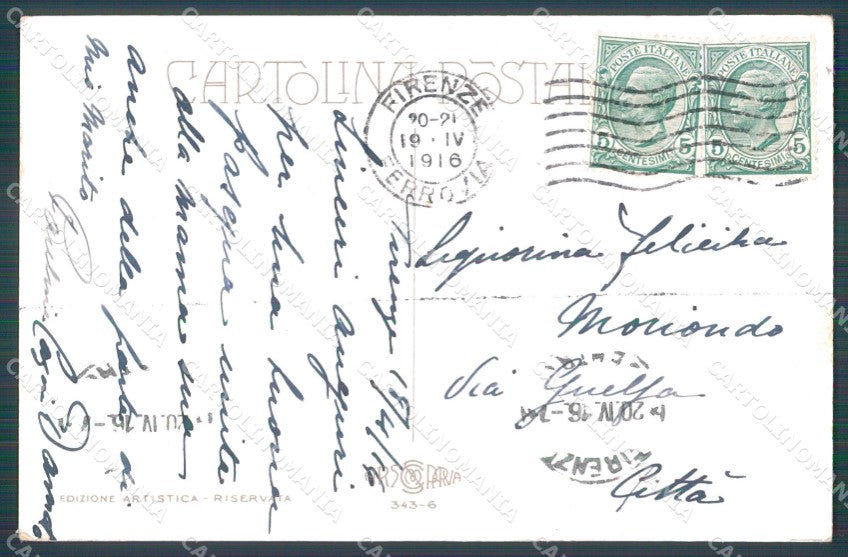 CARTOLINA POSTALE
FIRENZE
20-21
19·IV
1916
FERROVIA
POSTE ITALIANE
5 CENTESIMI 5
POSTE ITALIANE
5 CENTESIMI 5
Firenze 19/4/16
Sinceri Auguri
per una buona
Pasqua unita
alla mamma sua
anche della parte di
mio marito
Signorina Felicita
Moriondo
Via Guelfa
Città
FIRENZE
20.IV.16
20.IV.16
ARS PARVA
343-6
EDIZIONE ARTISTICA - RISERVATA
CARTOLINOMANIA